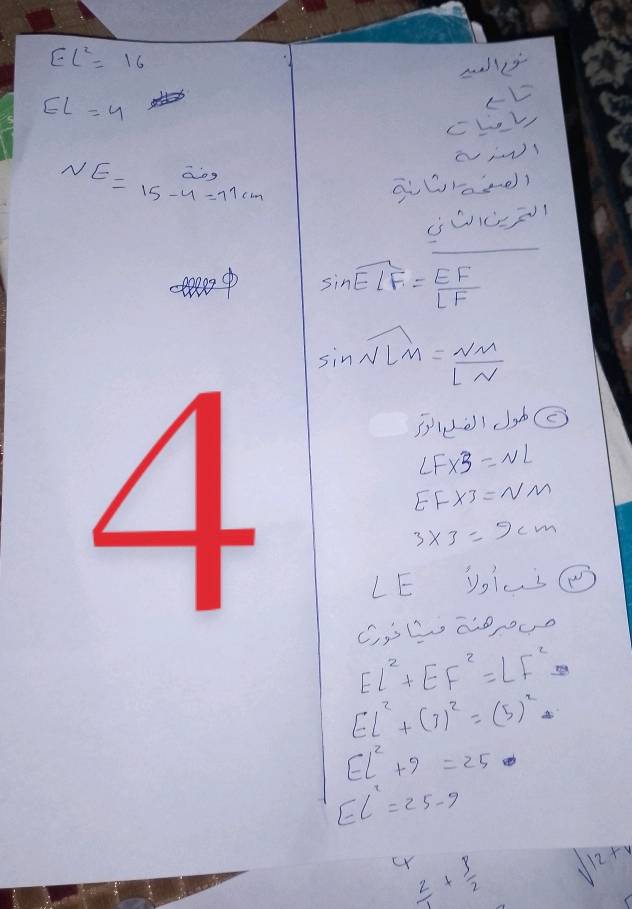 نوع العيد
تاسع
رياضيات
الهندسة
الصفحة الثانية
التمرين الثاني
sin ELF = EF / LF
sin NLM = NM / LN
② طول الضلع الوتر
LF×3 = NL
EF×3 = NM
3×3 = 9cm
③ نحسب أولاً LE
حسب مبرهنة فيثاغورث
EL² + EF² = LF²
EL² + (3)² = (5)²
EL² + 9 = 25
EL² = 25-9
EL² = 16
EL = 4
ومنه
NE = 15-4 = 11cm
4